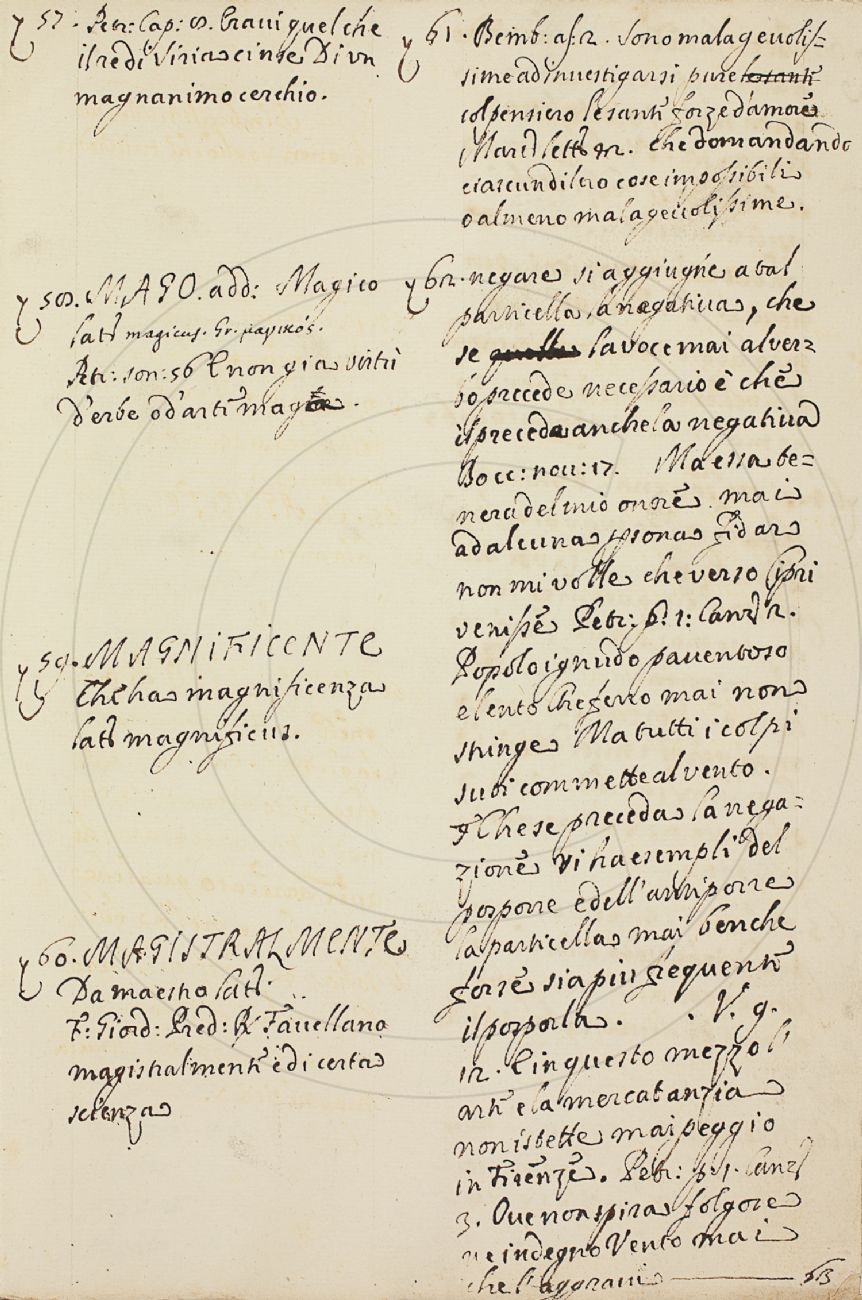 57. Petr: Cap: 8. Eravi quel che
il re di Siria cinse Di un
magnanimo cerchio.
58. MAGO. add: Magico
lat: magicus. Gr. μαγικός.
Petr: son: 56 E non già virtù
d'erbe o d'arte maga.
59. MAGNIFICENTE
Che ha magnificenza
lat: magnificus.
60. MAGISTRALMENTE
Da maestro lat:
F: Giord: Pred: R Favellano
magistralmente e di certa
scienza
61. Bemb: as: 2. Sono malagevolis-
sime ad investigarsi pure
col pensiero le sante forze d'amore
lett: 2. Che domandando
ciascun di loro cose impossibili
o almeno malagevolissime.
62. negare si aggiugne a tal
particella la negativa, che
se la voce mai al ver=
bo precede necessario è che
il preceda anche la negativa
Bocc: nov: 17. Ma essa te=
nera del mio onore mai
ad alcuna psona fidar
non mi volle che verso Cipri
venisse Petr: p: 1: Canz: 2.
Popolo ignudo paventoso
e lento Che ferro mai non
stringe Ma tutti i colpi
suoi commette al vento.
Che se preceda la nega=
zione vi ha esempli del
posporre e dell'antiporre
la particella mai benche
forse sia più frequente
il posporla. V. g.
12. E in questo mezzo l'
arte e la mercatanzia
non istette mai peggio
in Firenze. Petr: p: 1. Canz:
3. Ove non spira folgore
ne indegno Vento mai
che l'aggravi 63